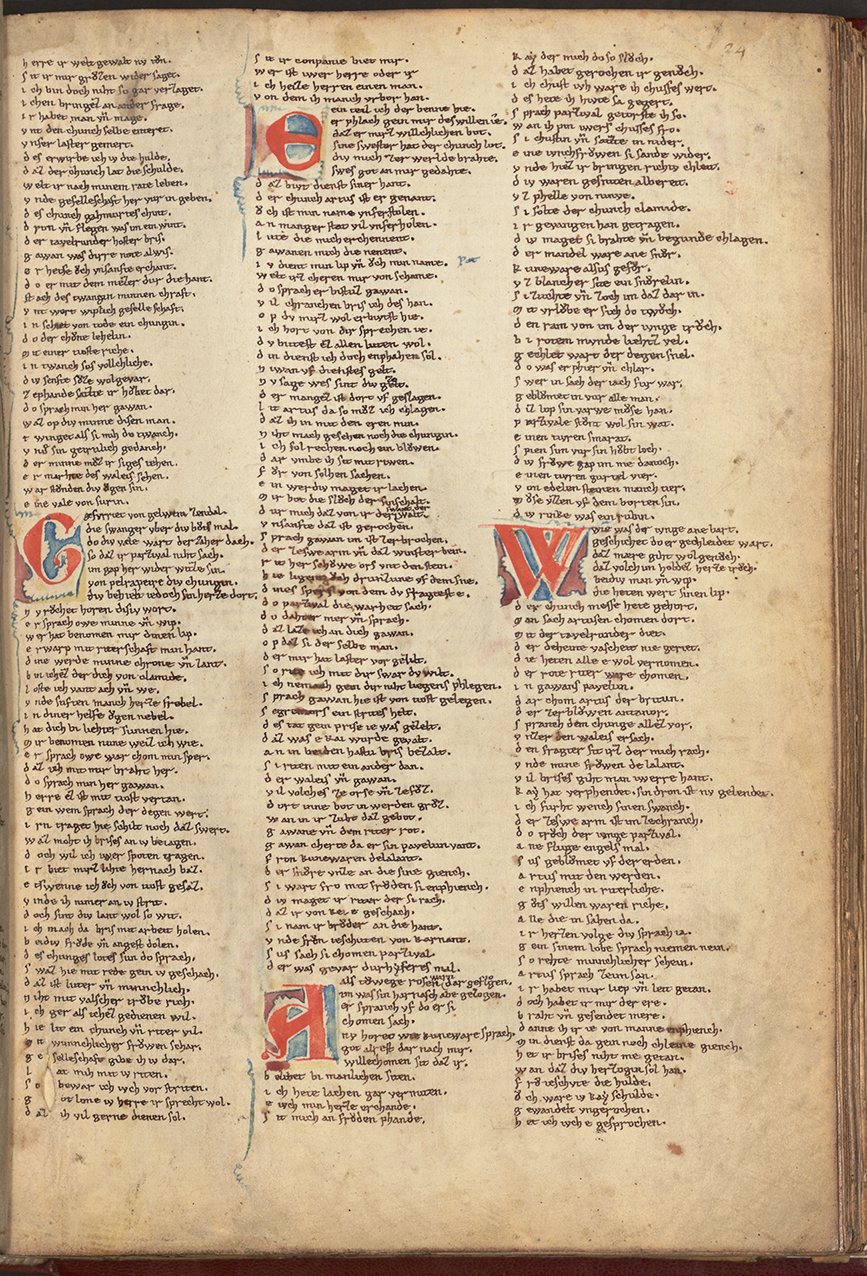 24
herre ir welt gewalt nv tv̊n.
sit ir mir grozen wider saget.
ich bin doch niht so gar verzaget.
ichen bringez an ander frage.
ir habet man vn̄ mage.
vnt den chunch selbe enteret.
vnser laster gemeret.
des erwirbe ich iv die hulde.
daz der chunch lat die schulde.
welt ir nach minem rate leben.
vnde geselleschaft her mir in geben.
des chunch gahmurtes chint.
dron vn̄ flegen was im ein wint.
der tavelrunder hohster bris.
gawan was dirre not alwis.
er hetse och vnsanfte erchant.
do er mit dem mezer dur die hant.
stach des twanginnen chraft.
vnt wert wiplich geselleschaft.
in schiet von tode ein chungin.
do der chone lehelin.
mit einer tioste riche.
in twanch sos vollchliche.
div senfte sv̊ze wolgevar.
ze phande sazte ir hobet dar.
do sprach min her gawan.
waz op div minne disen man.
twinget als si mih do twanch.
vn̄ sin getriulich gedanch.
der minne mv̊z ir siges iehen.
er marhte des waleis sehen.
war stv̊nden div ogen sin.
eine vale von surin.
Gefurriet von gelwem zendal.
die swanger vber div bv̊ts mal.
do div vale wart der zaher dach.
so daz ir parzival niht sach.
im gap her wider witze sin.
von pelrapeire div chungin.
div behielt iedoch sin herze dort.
nv rv̊chet horen disiv wort.
er sprach owe minne vn̄ wip.
wer hat benomen mir dinen lip.
erwarp mit riterschaft min hant.
dine werde minne chrone vn̄ lant.
bin ichez der dich von clamide.
loste ich vant ach vn̄ we.
vnde siuften manch herze frebel.
in diner helfe ogen nebel.
hat dich bi liehter sunnen hie.
mir benomen nune weiz ich wie.
er sprach owe war chom min sper.
daz ich mit mir braht her.
do sprach min her gawan.
herre ez ist mit tiost vertan.
gein wem sprach der degen wert.
irn traget hie schilt noch daz swert.
waz moht ih brises an iv beiagen.
doch wil ich iwer spoten tragen.
ir biet mirz lihte hernach baz.
etswenne ich och von tiost gesaz.
vinde ih nimer an iv strit.
doch sint div lant wol so wit.
ich mach da bris mit arbeit holen.
beidiv frode vn̄ angest dolen.
des chunges lotes sun do sprach.
swaz hie mit rede gein iv geschach.
daz ist luter vn̄ minnchlich.
niht mit valscher trv̊be rich.
ich ger als ichez gedienen wil.
hie lit ein chunch vn̄ riter vil.
mit wunnchlicher frowen schar.
geselleschaft gibe ih iv dar.
lat mih mit iv riten.
so bewar ich iwch vor striten.
got lone iv herre ir sprecht wol.
daz ih vil gerne dienen sol.
sit ir conpanie biet mir.
wer ist iwer herre oder ir
ich heize herren einen man.
von dem ih manch vrbor han.
Ein teil ich der benne hie.
er phlach gein mir des willen ie.
daz er mirz willchlichen bot.
sine swester hat der chunch lot.
div mich zer werlde brahte.
swes got an mir gedahte.
daz biut dienst siner hant.
der chunch artus ist er genant.
och ist min name vnferstolen.
an manger stat vil vnferholen.
liute die mich erchennent.
gawanen mich die nenent.
iv dient min lip vn̄ och min name.
welt irz cheren mir von schame.
do sprach er bistuz gawan.
vil chranchen bris ich des han.
op dv mirz wol erbiutst hie.
ich hort von dir sprechen ie.
dv bittest ez allen liuten wol.
din dienst ich doch enphahen sol.
niwan vf dienstes gelt.
nv sage wes sint div gezelt.
der mangez ist dort vf geslagen.
lit artus da so mv̊z ich chlagen.
daz ih in mit den eren min.
niht mach gesehen noch die chungin.
ich sol rechen noch ein blowen.
dar vmbe ih sit mit riwen.
fv̊r von solhen sachen.
ein werdiv maget ir lachen.
mir bot die slv̊ch der sinschalt.
dur mich daz von ir der walt.
vnsanfte daz ist gerochen.
sprach gawan im ist zerbrochen.
der zeswe arm vn̄ daz winster bein.
rit her schowe ors vnt den stein.
hie ligent och drunzune vf dem sne.
dines spers von dem dv fragtest e.
do parzival die warheit sach.
do dahter mer vn̄ sprach.
daz laze ich an dich gawan.
op daz si der selbe man.
der mir hat laster vor gezilt.
so rite ich mit dir swar dv wilt.
ich nemach gein dir niht liegens phlegen.
sprach gawan hie ist von tiost gelegen.
segremors ein strites helt.
des tat gein prise ie was gezelt.
daz was e kai wurde gevalt.
an in beiden hastu bris bezalt.
si riten mit ein ander dan.
der waleis vn̄ gawan.
vil volches ze orse vn̄ zefv̊z.
dort inne bot in werden grv̊z.
wan in ir zuhte daz gebot.
gawane vn̄ dem riter rot.
gawan cherte da er sin pavelun vant.
fron kunewaren delalant.
der snv̊re vnze an die sine giench.
si wart fro mit froden si enphiench.
div maget ir riter der si rach.
daz ir von keie geschach.
si nam ir brv̊der an die hant.
vnde fron ieschuten von karnant.
sus sach si chomen parzival.
der was gevar durh isers mal.
Als towege rosen dar geflogen.
im was sin harnasch abe gezogen.
er spranch vf do er si
chomen sach.
nv horet wie kuneware sprach.
got alrest dar nach mir.
willechomen sit daz ir.
belibet bi manlichen siten.
ich hete lachen gar vermiten.
e iwch min herze erchande.
sit mich an froden phande.
kay der mich do so slv̊ch.
daz habet gerochen ir genv̊ch.
ich chust iwch ware ih chusses wert.
des hete ih hiute sa gegert.
sprach parzival getorste ih so.
wan ih pin iwers chusses fro.
si chustin vn̄ sazte in nider.
eine iunchfrowen si sande wider.
vnde hiez ir bringen richiv chleit.
div waren gesniten al bereit.
vz phelle von ninve.
si solte der chunch clamide.
ir gevangen han getragen.
div maget si brahte vn̄ begunde chlagen.
der mandel ware ane snv̊r.
kuneware alsus gefv̊r.
vz blancher site ein snv̊relin.
si zuchte vn̄ zoch im daz dar in.
mit vrlobe er sich do twv̊ch.
den ram von im der iunge trv̊ch.
bi rotem munde liehtiz vel.
gechleit wart der degen snel.
do was er phier vn̄ chlar.
swer in sach der iach fur war.
geblv̊met in vur alle man.
diz lop sin varwe mv̊se han.
parzivale stv̊nt wol sin wat.
einen grv̊nen smarat.
spien si im vur sin hobt loch.
div frowe gap im me danoch.
einen tiuren gurtel vier.
von edelen steinen manch tier.
mv̊se vzen vf dem borten sin.
div rinke was ein rubin.
Wie was der iunge ane bart.
geschichet do er gechleidet wart.
daz mare giht wol genv̊ch.
daz volch im holdez herze trv̊ch.
beidiv man vn̄ wip.
die heten wert sinen lip.
der chunch messe hete gehort.
man sach artusen chomen dort.
mit der tavelrunder diet.
der deheine valscheit nie geriet.
die heten alle e wol vernomen.
der rote riter ware chomen.
in gawans pavelun.
dar chom artus der britun.
der zerblowen antanor.
spranch dem chunge allez vor.
vnzer den waleis ersach.
den fragter sit irz der mich rach.
vnde mine frowen de lalant.
vil brises giht man iwerre hant.
kay hat verphendet. sin dron ist nv gelendet.
ich furht wench sinen swanch.
der zeswe arm ist im ze chranch.
do trv̊ch der iunge parzival.
ane fluge engels mal.
sus geblv̊met vf der erden.
artus mit den werden.
enphiench in riterliche.
gv̊tes willen waren riche.
alle die in sahen da.
ir herzen volge div sprach ia.
gein sinem lobe sprach niemen nein.
so rehte minnchlicher schein.
artus sprach zeim san.
ir habet mir liep vn̄ leit getan.
doch habet ir mir der ere.
braht vn̄ gesendet mere.
danne ih ir ie von manne enphiench.
min dienst da gein noch chleine giench.
het ir brises niht me getan.
wan daz div herzogin sol han.
fro ieschute die hulde.
och ware iv kay schulde.
gewandelt vngerochen.
het ich iwch e gesprochen.